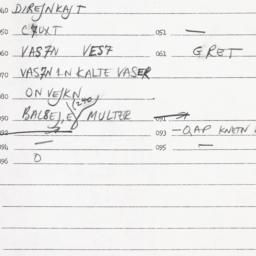 040 DIREJNKAJT
050 CYUXT 051 —
060 VAS7N VES7 061 GRET
070 VAS7N 1N KALTE VASER
080 ON VEJKN
090 BALBEJ, EJ MULTER (240) 091
092 093 —QAP KNETN
094 — 095 —
096 O